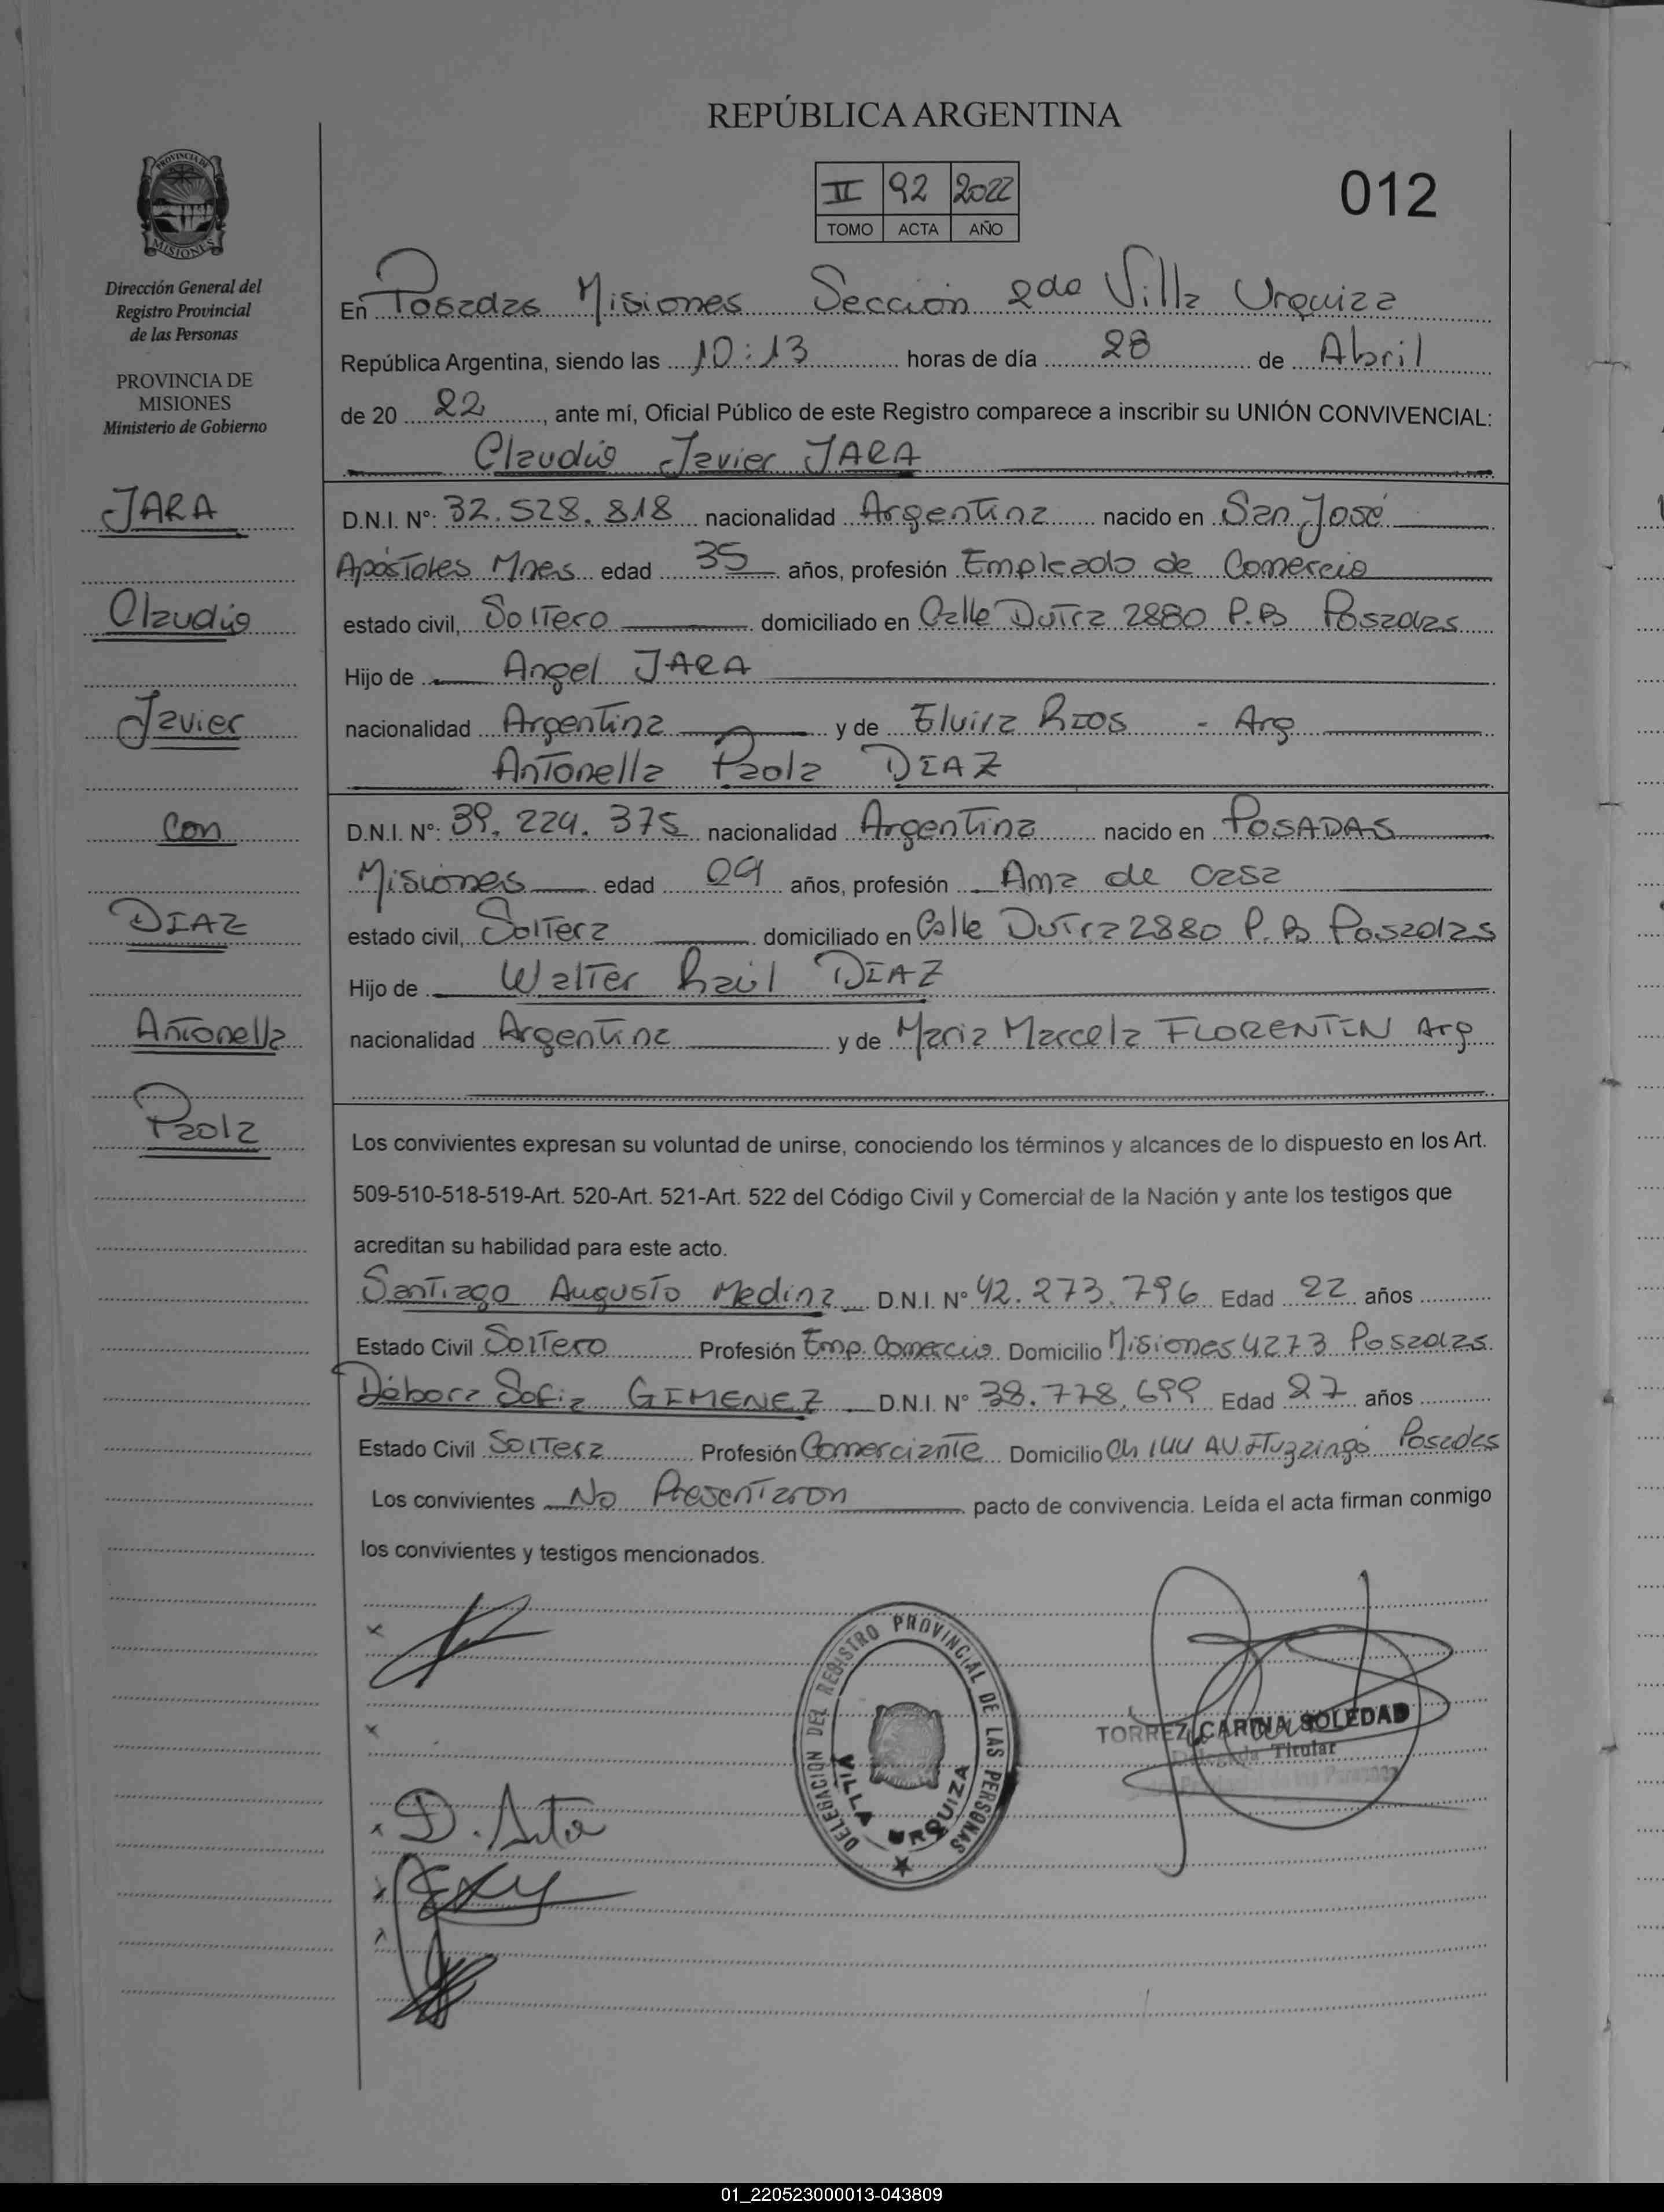 REPÚBLICA ARGENTINA
II 92 2022
TOMO ACTA AÑO
012
PROVINCIA DE
MISIONES
Dirección General del
Registro Provincial
de las Personas
PROVINCIA DE
MISIONES
Ministerio de Gobierno
JARA
Claudio
Javier
con
DIAZ
Antonella
Paola
En Posadas Misiones Sección 2da Villa Urquiza
República Argentina, siendo las 10:13 horas de día 28 de Abril
de 20 22, ante mí, Oficial Público de este Registro comparece a inscribir su UNIÓN CONVIVENCIAL:
Claudio Javier JARA
D.N.I. Nº: 32.528.818 nacionalidad Argentina nacido en San José
Apóstoles Mnes edad 35 años, profesión Empleado de Comercio
estado civil, Soltero domiciliado en Calle Dutra 2880 P.B Posadas
Hijo de Angel JARA
nacionalidad Argentina y de Elvira RIOS - Arg
Antonella Paola DIAZ
D.N.I. Nº: 39.224.375 nacionalidad Argentina nacido en POSADAS
Misiones edad años, profesión Ama de casa
estado civil, Soltera domiciliado en Calle Dutra 2880 P.B Posadas
Hijo de Walter Raúl DIAZ
nacionalidad Argentina y de Maria Marcela FLORENTIN Arg
Los convivientes expresan su voluntad de unirse, conociendo los términos y alcances de lo dispuesto en los Art.
509-510-518-519-Art. 520-Art. 521-Art. 522 del Código Civil y Comercial de la Nación y ante los testigos que
acreditan su habilidad para este acto.
Santiago Augusto Medina D.N.I. Nº 42.273.796 Edad 22 años
Estado Civil Soltero Profesión Emp. Comercio Domicilio Misiones 4273 Posadas
Débora Sofia GIMENEZ D.N.I. Nº 38.778.699 Edad 27 años
Estado Civil Soltera Profesión Comerciante Domicilio Ch 144 AV ITuzaingó Posadas
Los convivientes No Presentaron pacto de convivencia. Leída el acta firman conmigo
los convivientes y testigos mencionados.
DELEGACIÓN DEL REGISTRO PROVINCIAL DE LAS PERSONAS
VILLA URQUIZA
TORREZ CARINA SOLEDAD
Delegada Titular
Provincial de las Personas
01_220523000013-043809